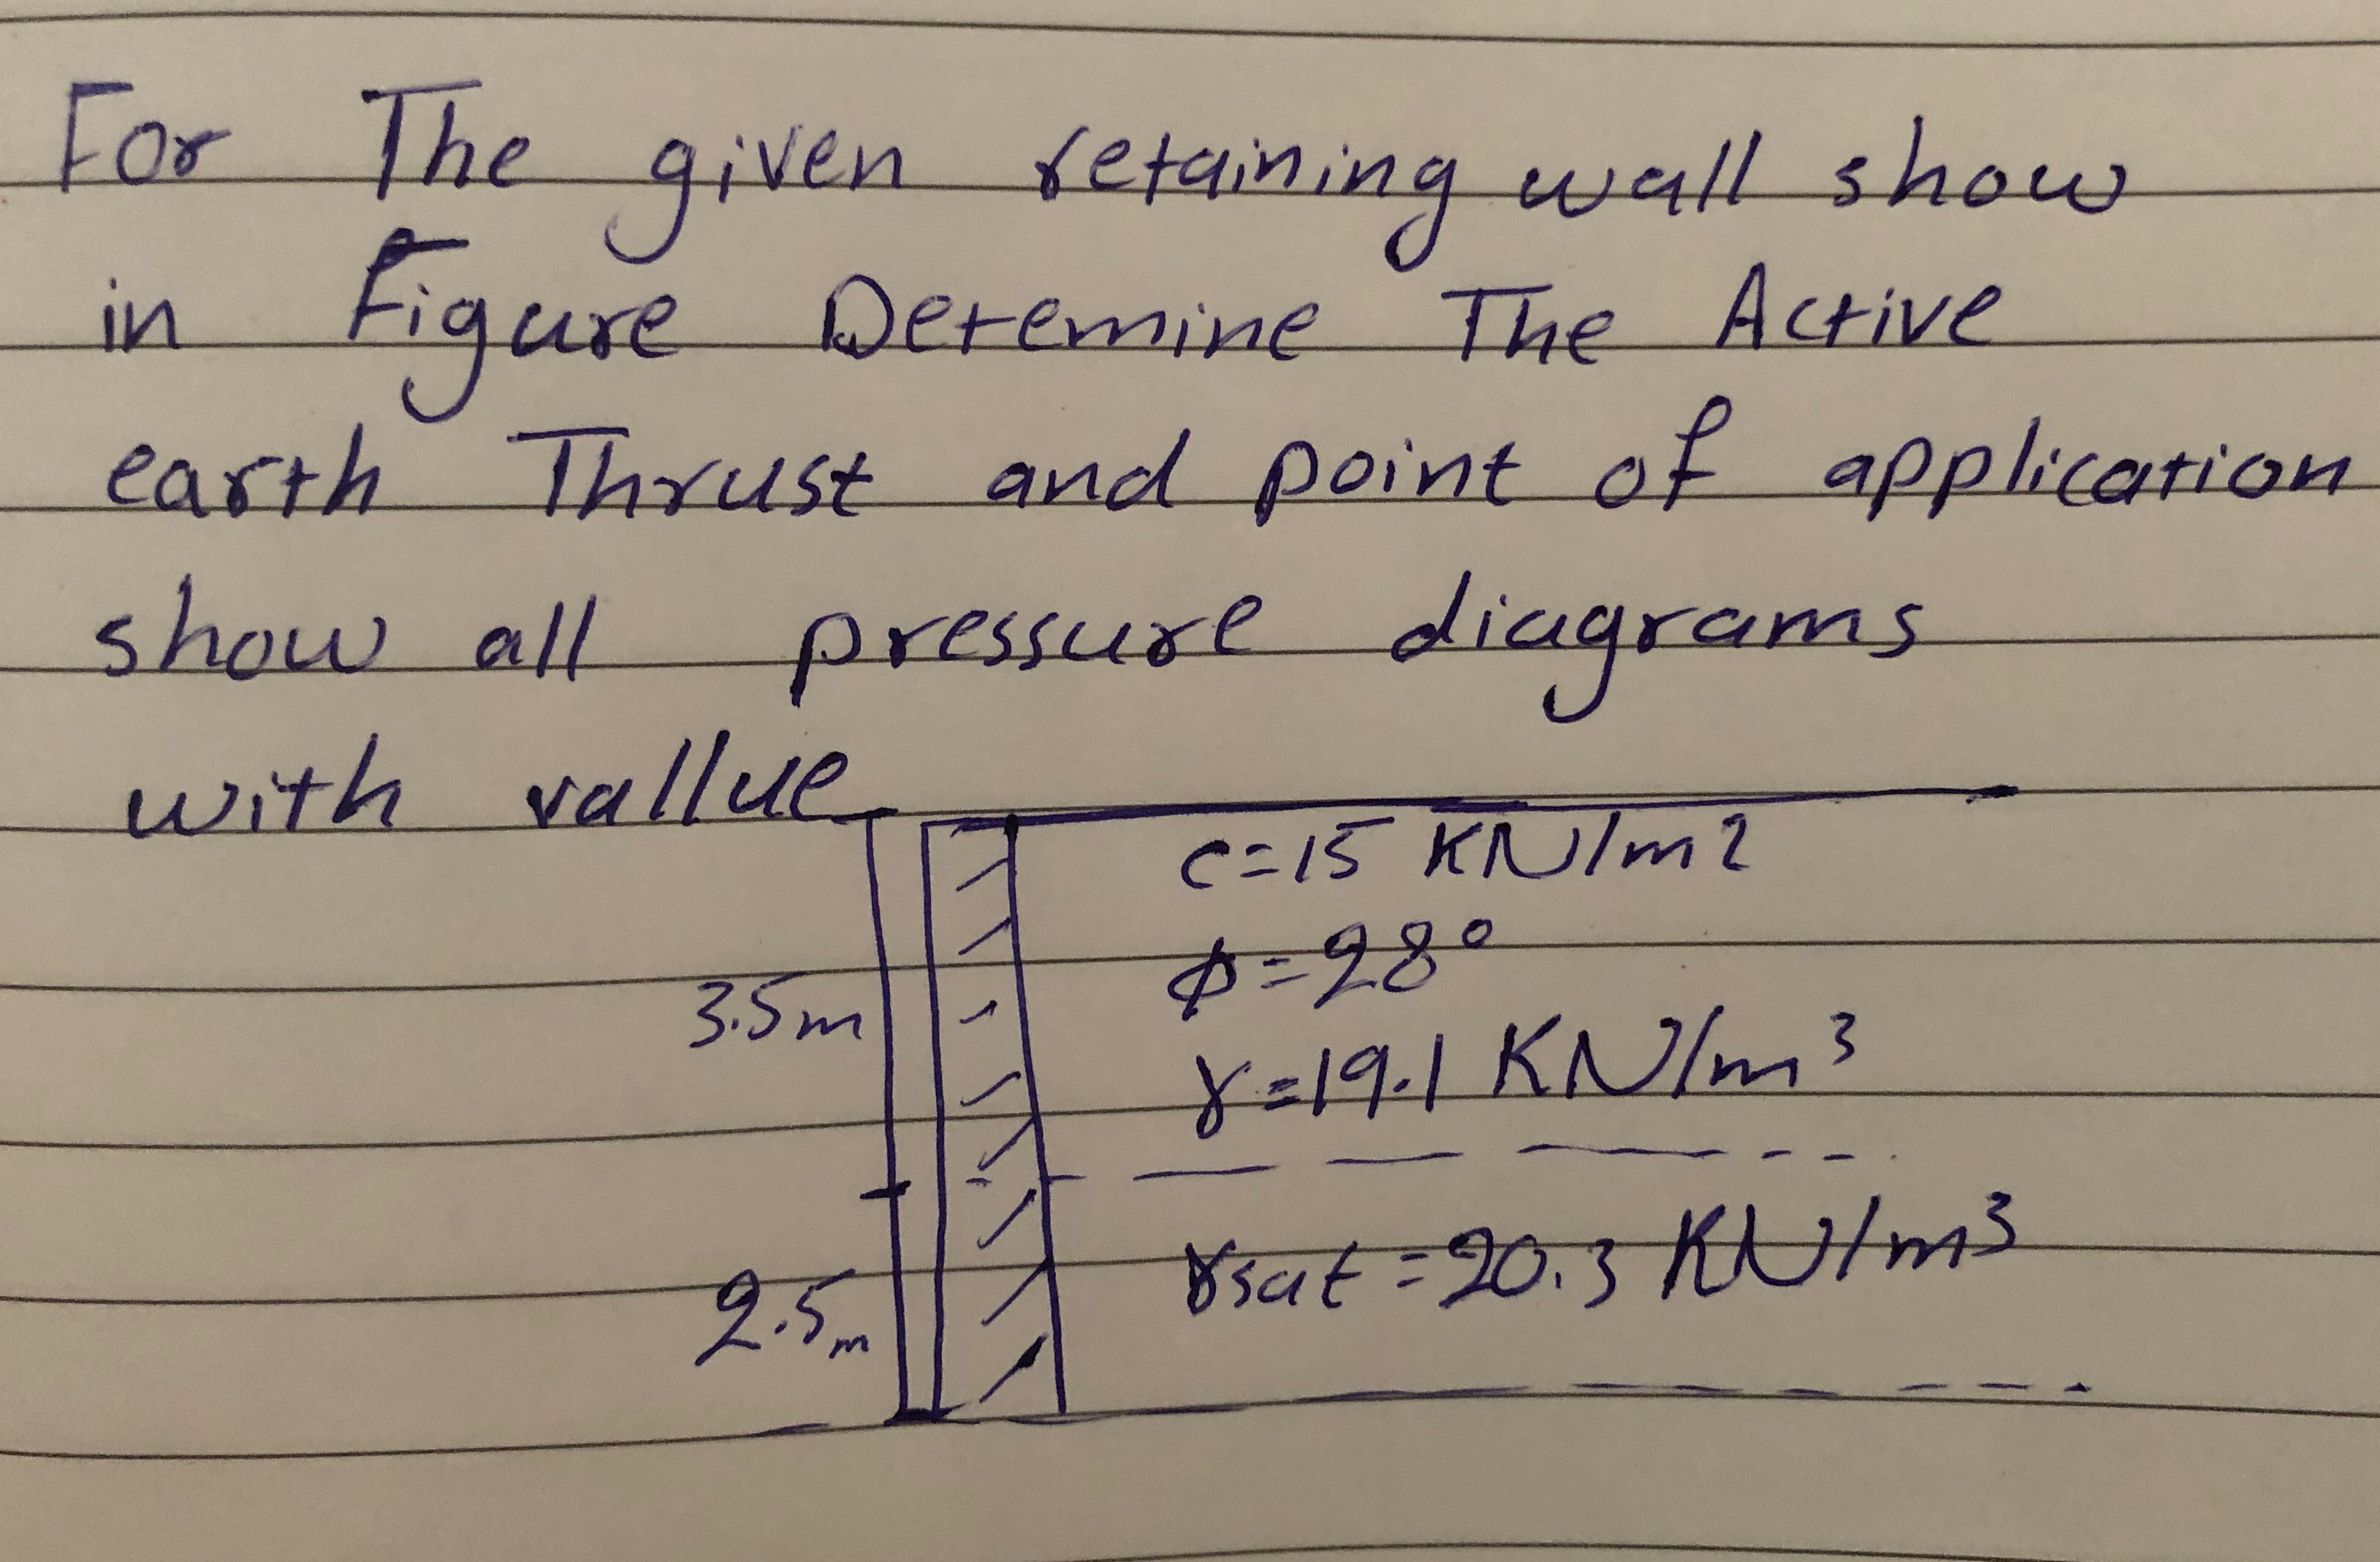 For The given retaining wall show
in Figure Deremine The Active
earth Thrust and point of application
show all pressure diagrams
with vallue
c=15 KN/m2
ϕ=28°
3.5m
γ=19.1 KN/m³
γsat=20.3 KN/m³
2.5m